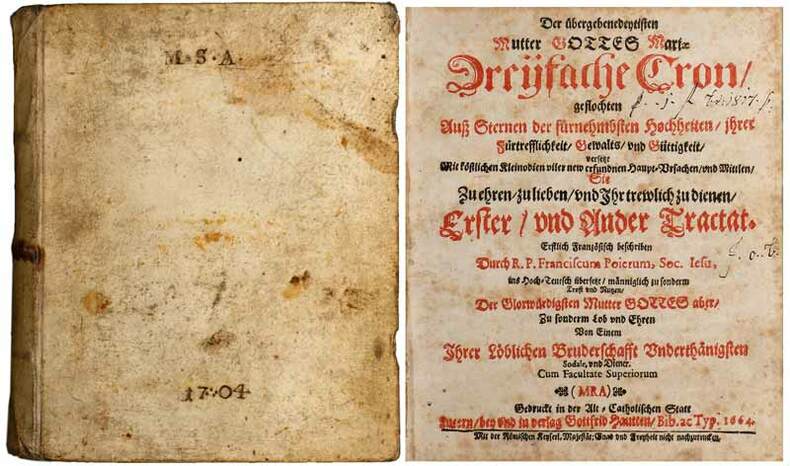 M·S·A·
1704
Der übergebenedeytisten
Mutter GOTTES Mariæ
Dreyfache Cron/
geflochten
Auß Sternen der fürnehmbsten Hochheiten/ jhrer
Fürtrefflichkeit/ Gewalts/ vnd Güttigkeit/
versetzt
Mit köstlichen Kleinodien viler new erfundnen Haupt-Vrsachen/ vnd Mittlen/
Sie
Zu ehren/ zu lieben/ vnd Jhr trewlich zu dienen/
Erster/ vnd Ander Tractat.
Erstlich Französisch beschriben
Durch R. P. Franciscum Poierum, Soc. Iesu,
ins Hoch-Teutsch übersetzt/ männiglich zu sonderm
Trost vnd Nutzen/
Der Glorwürdigsten Mutter GOTTES aber/
Zu sonderm Lob vnd Ehren
Von Einem
Jhrer Löblichen Bruderschafft Vnderthänigsten
Sodale, vnd Diener.
Cum Facultate Superiorum
(MRA)
Gedruckt in der Alt-Catholischen Statt
Lucern/ bey vnd in verlag Gottfrid Hautten/ Bib. ac Typ. 1664.
Mit der Römischen Keyserl. Majestät: Gnad vnd Freyheit nicht nachzutrucken.